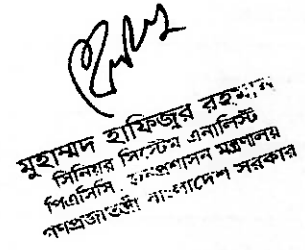 মুহাম্মদ হাফিজুর রহমান
সিনিয়র সিস্টেম এনালিস্ট
পিএসিসি, জনপ্রশাসন মন্ত্রণালয়
গণপ্রজাতন্ত্রী বাংলাদেশ সরকার